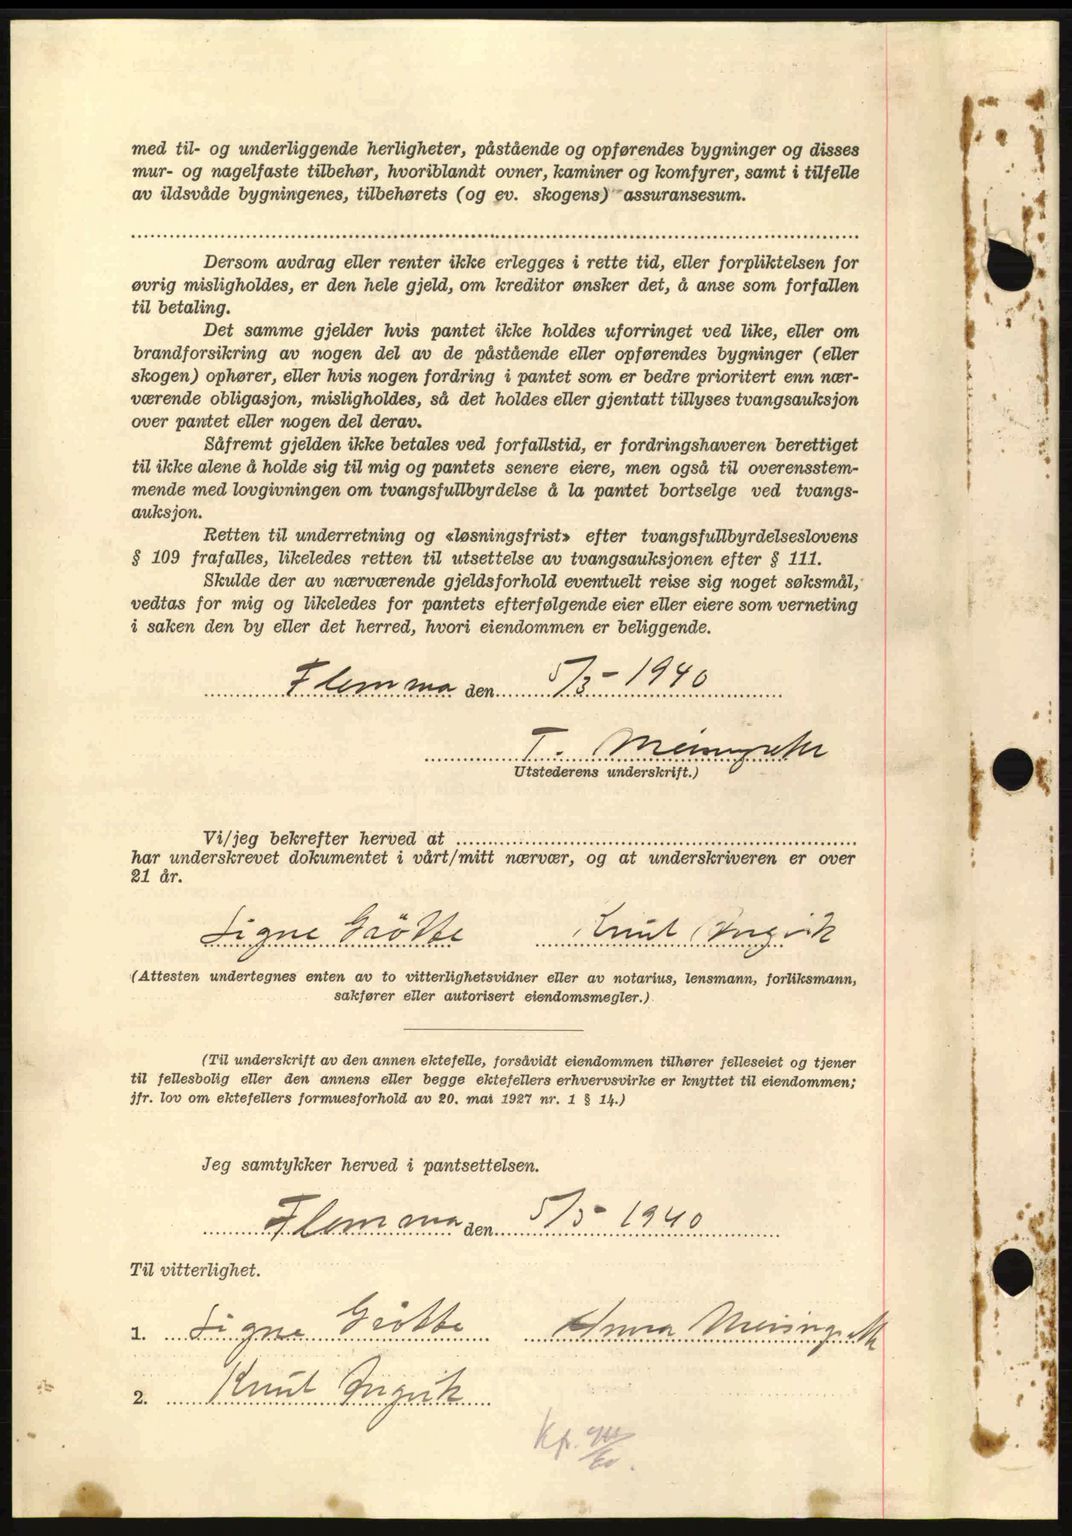 med til- og underliggende herligheter, påstående og opførendes bygninger og disses
mur- og nagelfaste tilbehør, hvoriblandt ovner, kaminer og komfyrer, samt i tilfelle
av ildsvåde bygningenes, tilbehørets (og ev. skogens) assuransesum.
Dersom avdrag eller renter ikke erlegges i rette tid, eller forpliktelsen for
øvrig misligholdes, er den hele gjeld, om kreditor ønsker det, å anse som forfallen
til betaling.
Det samme gjelder hvis pantet ikke holdes uforringet ved like, eller om
brandforsikring av nogen del av de påstående eller opførendes bygninger (eller
skogen) ophører, eller hvis nogen fordring i pantet som er bedre prioritert enn nær-
værende obligasjon, misligholdes, så det holdes eller gjentatt tillyses tvangsauksjon
over pantet eller nogen del derav.
Såfremt gjelden ikke betales ved forfallstid, er fordringshaveren berettiget
til ikke alene å holde sig til mig og pantets senere eiere, men også til overensstem-
mende med lovgivningen om tvangsfullbyrdelse å la pantet bortselge ved tvangs-
auksjon.
Retten til underretning og «løsningsfrist» efter tvangsfullbyrdelseslovens
§ 109 frafalles, likeledes retten til utsettelse av tvangsauksjonen efter § 111.
Skulde der av nærværende gjeldsforhold eventuelt reise sig noget søksmål,
vedtas for mig og likeledes for pantets efterfølgende eier eller eiere som verneting
i saken den by eller det herred, hvori eiendommen er beliggende.
Flemma den 5/3-1940
T. Meisingseth
Utstederens underskrift.)
Vi/jeg bekrefter herved at
har underskrevet dokumentet i vårt/mitt nærvær, og at underskriveren er over
21 år.
Signe Grötte Knut Ingvik
(Attesten undertegnes enten av to vitterlighetsvidner eller av notarius, lensmann, forliksmann,
sakfører eller autorisert eiendomsmegler.)
(Til underskrift av den annen ektefelle, forsåvidt eiendommen tilhører felleseiet og tjener
til fellesbolig eller den annens eller begge ektefellers erhvervsvirke er knyttet til eiendommen;
jfr. lov om ektefellers formuesforhold av 20. mai 1927 nr. 1 § 14.)
Jeg samtykker herved i pantsettelsen.
Flemma den 5/3-1940
Til vitterlighet.
1. Signe Grötte Anna Meisingseth
2. Knut Ingvik